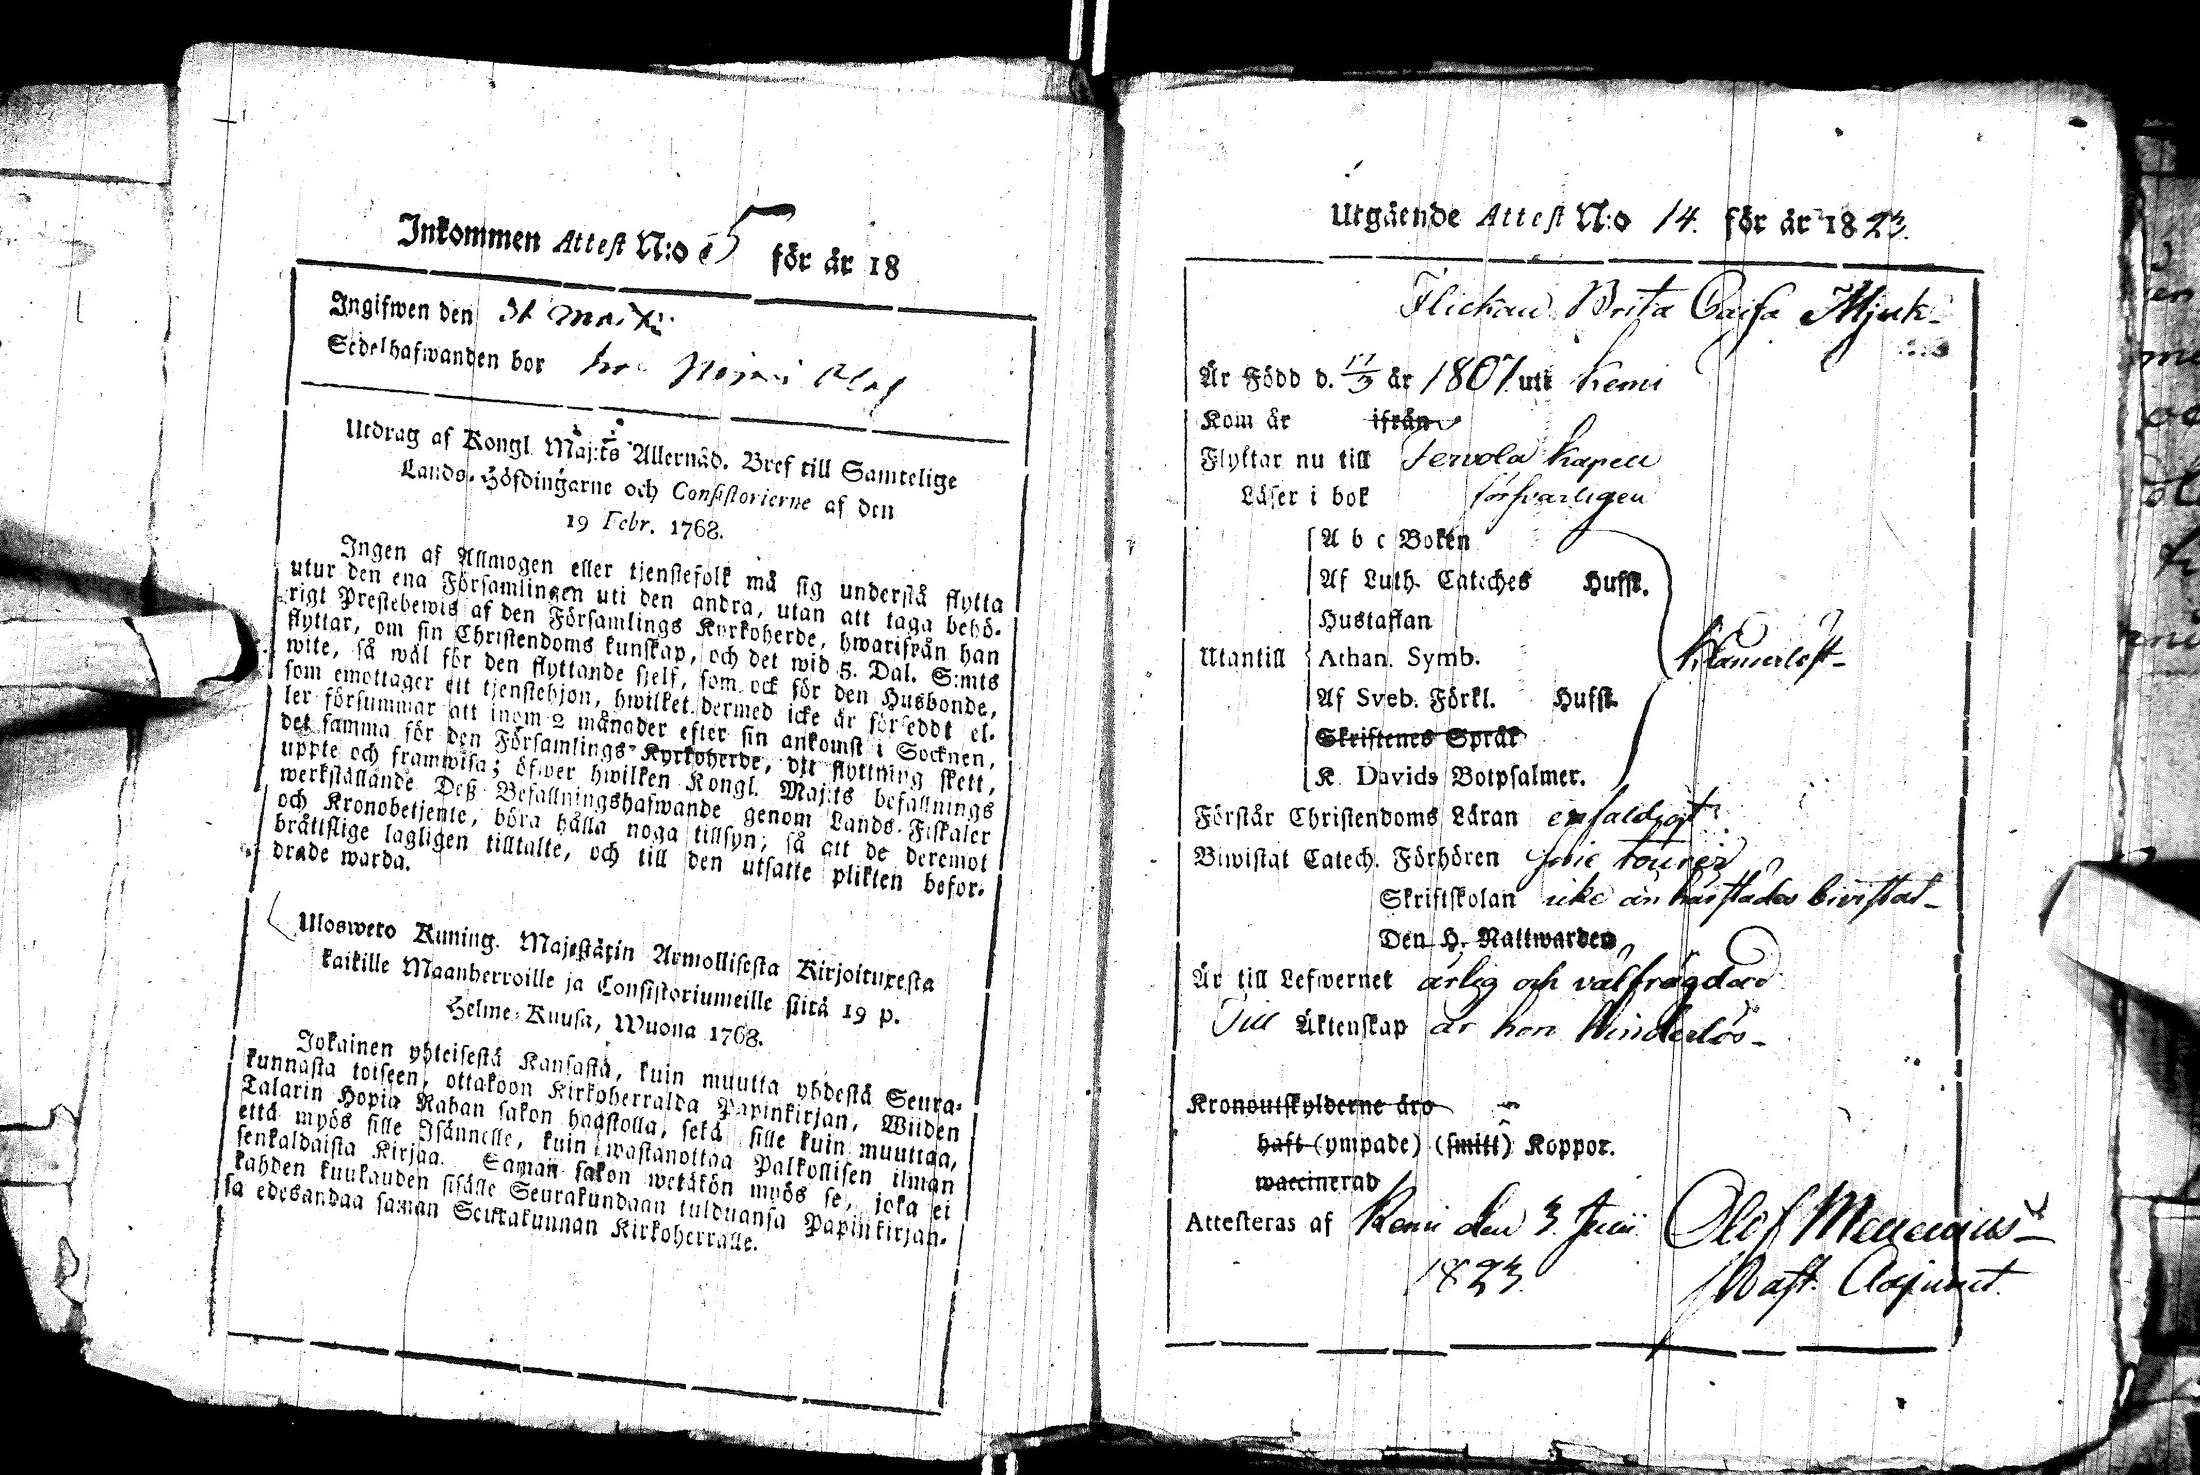 Inkommen Attest N:o 5 för år 18
Ingifwen den 31
Sedelhafwanden bor Olof
Utdrag af Kongl. Maj:ts Allernåd. Bref till Samtelige
Lands-Höfdingarne och Consistorierne af den
19 Febr. 1768.
Ingen af Allmogen eller tjenstefolk må sig understå flytta
utur den ena Församlingen uti den andra, utan att taga behö-
rigt Prestebewis af den Församlings Kyrkoherde, hwarifrån han
flyttar, om sin Christendoms kunskap, och det wid 5. Dal. S:mts
wite, så wäl för den flyttande sjelf, som ock för den Husbonde,
som emottager ett tjenstehjon, hwilket dermed icke är försedt el-
ler försummar att inom 2 månader efter sin ankomst i Socknen,
det samma för den Församlings Kyrkoherde, dit flyttning skett,
uppte och framwisa; öfwer hwilken Kongl. Maj:ts befallnings
werkställande Deß Befallningshafwande genom Lands-Fiskaler
och Kronobetjente, böra hålla noga tillsyn; så att de deremot
bråttslige lagligen tilltalte, och till den utsatte plikten befor-
drade warda.
Ulosweto Kuning. Majestätin Armollisesta Kirjoituxesta
kaikille Maanherroille ja Consistoriumeille siitä 19 p.
Helme-Kuusa, Wuona 1768.
Jokainen yhteisestä Kansasta, kuin muutta yhdestä Seura-
kunnasta toiseen, ottakoon Kirkoherralda Papinkirjan, Wiiden
Talarin Hopia Rahan sakon haastolla, sekä sille kuin muuttaa,
että myös sille Isännelle, kuin wastanottaa Palkollisen ilman
senkaldaista Kirjaa. Saman sakon wetäkön myös se, joka ei
kahden kuukauden sisälle Seurakundaan tulduansa Papinkirjan-
sa edesandaa saman Seurakunnan Kirkoherralle.
Utgående Attest N:o 14. för år 1823.
Flickan Brita Caisa Mjuk-
Är Född d. 17/3 år 1807 uti Kemi
Kom år ifrån
Flyttar nu till Tervola Kapell
Läser i bok försvarligen
A b c Boken
Af Luth. Cateches Hufst.
Hustaflan
Utantill Athan. Symb.
Af Sveb. Förkl. Hufst.
Skriftenes Språk
K. Davids Botpsalmer.
Förstår Christendoms Läran enfaldigt
Biwistat Catech. Förhören
Skriftskolan icke än härstädes bivistat-
Den H. Nattwarden
Är till Lefwernet ärlig och välfrägdad
Till Äktenskap är hon hinderlös-
Kronoutskylderne äro
haft (ympade) (smitt) Koppor.
waccinerad
Attesteras af Kemi den 3 Junii Olof
1823. Past. Adjunct.